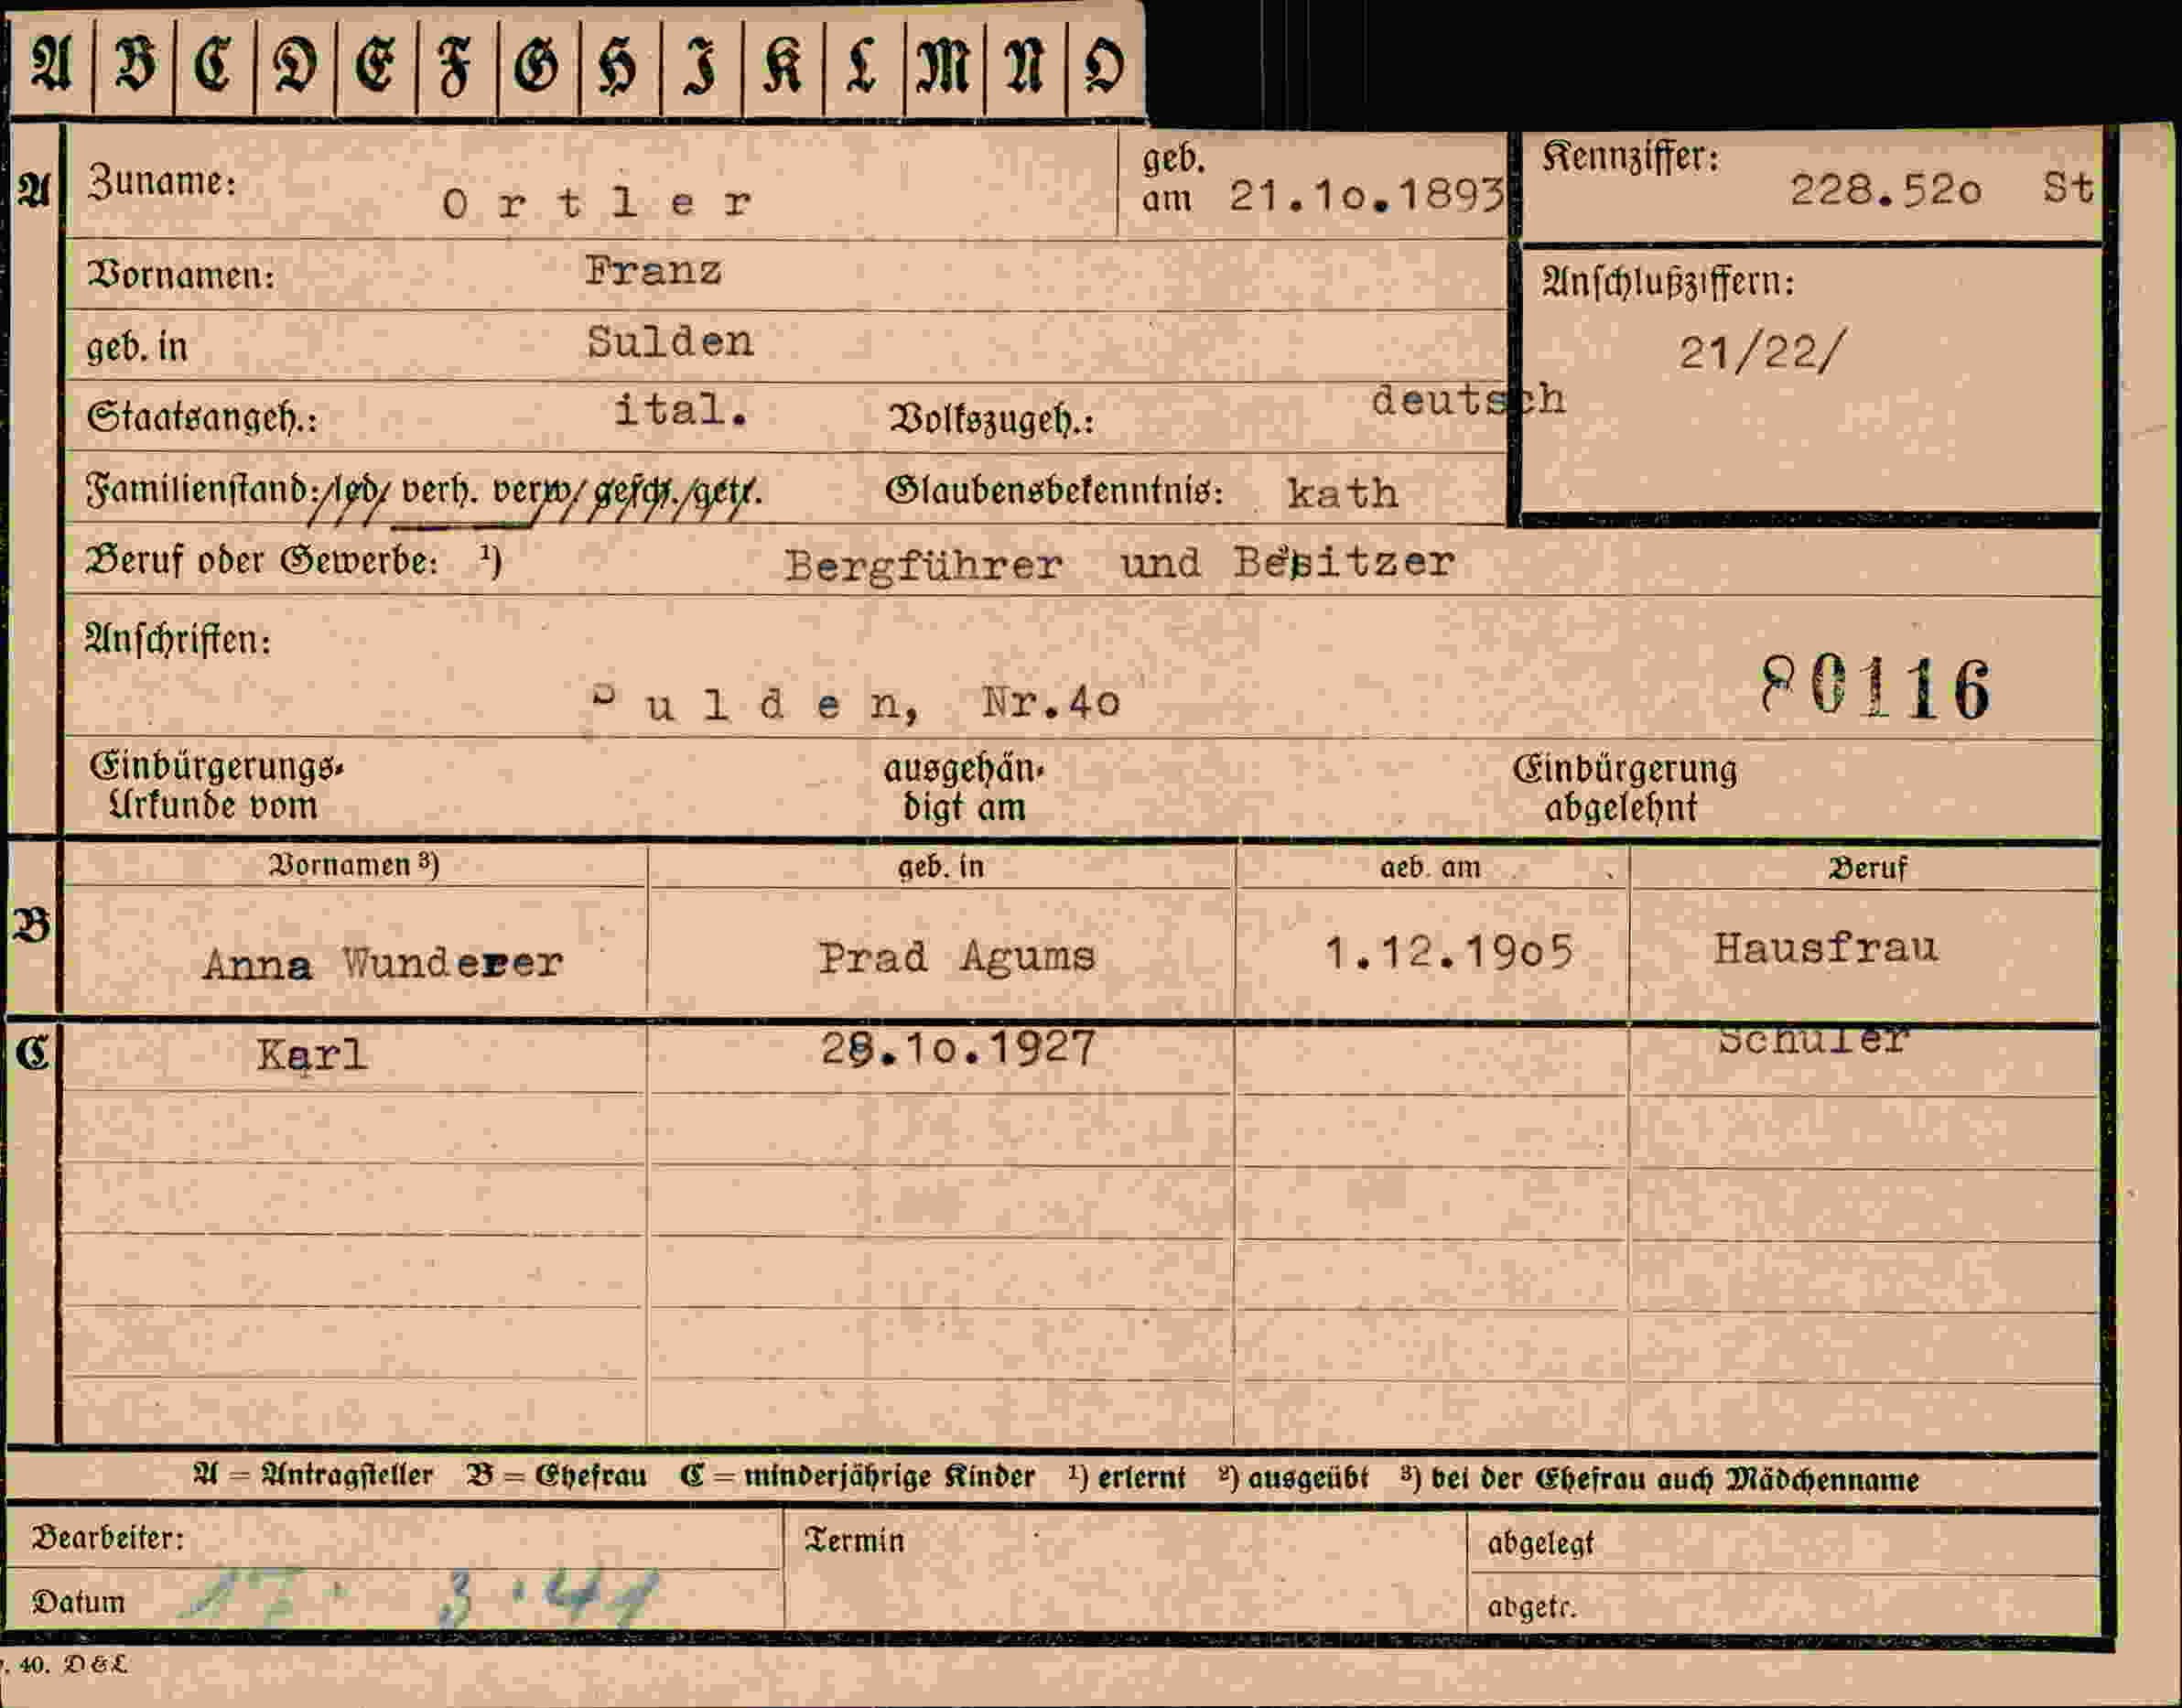 A B C D E F G H I K L M N O
A Zuname: Ortler geb. am 21.10.1893 Kennziffer: 228.520 St
Vornamen: Franz Anschlußziffern:
geb. in Sulden 21/22/
Staatsangeh.: ital. Volkszugeh.: deutsch
Familienstand: led. verh. verw. gesch. getr. Glaubensbekenntnis: kath
Beruf oder Gewerbe: ¹) Bergführer und Besitzer
Anschriften:
Sulden, Nr.40 80116
Einbürgerungs- Urkunde vom ausgehän- digt am Einbürgerung abgelehnt
Vornamen ³) geb. in geb. am Beruf
B Anna Wunderer Prad Agums 1.12.1905 Hausfrau
C Karl 28.10.1927 Schüler
A = Antragsteller B = Ehefrau C = minderjährige Kinder ¹) erlernt ²) ausgeübt ³) bei der Ehefrau auch Mädchenname
Bearbeiter: Termin abgelegt
Datum 17. 3.41 abgetr.
40. D & L